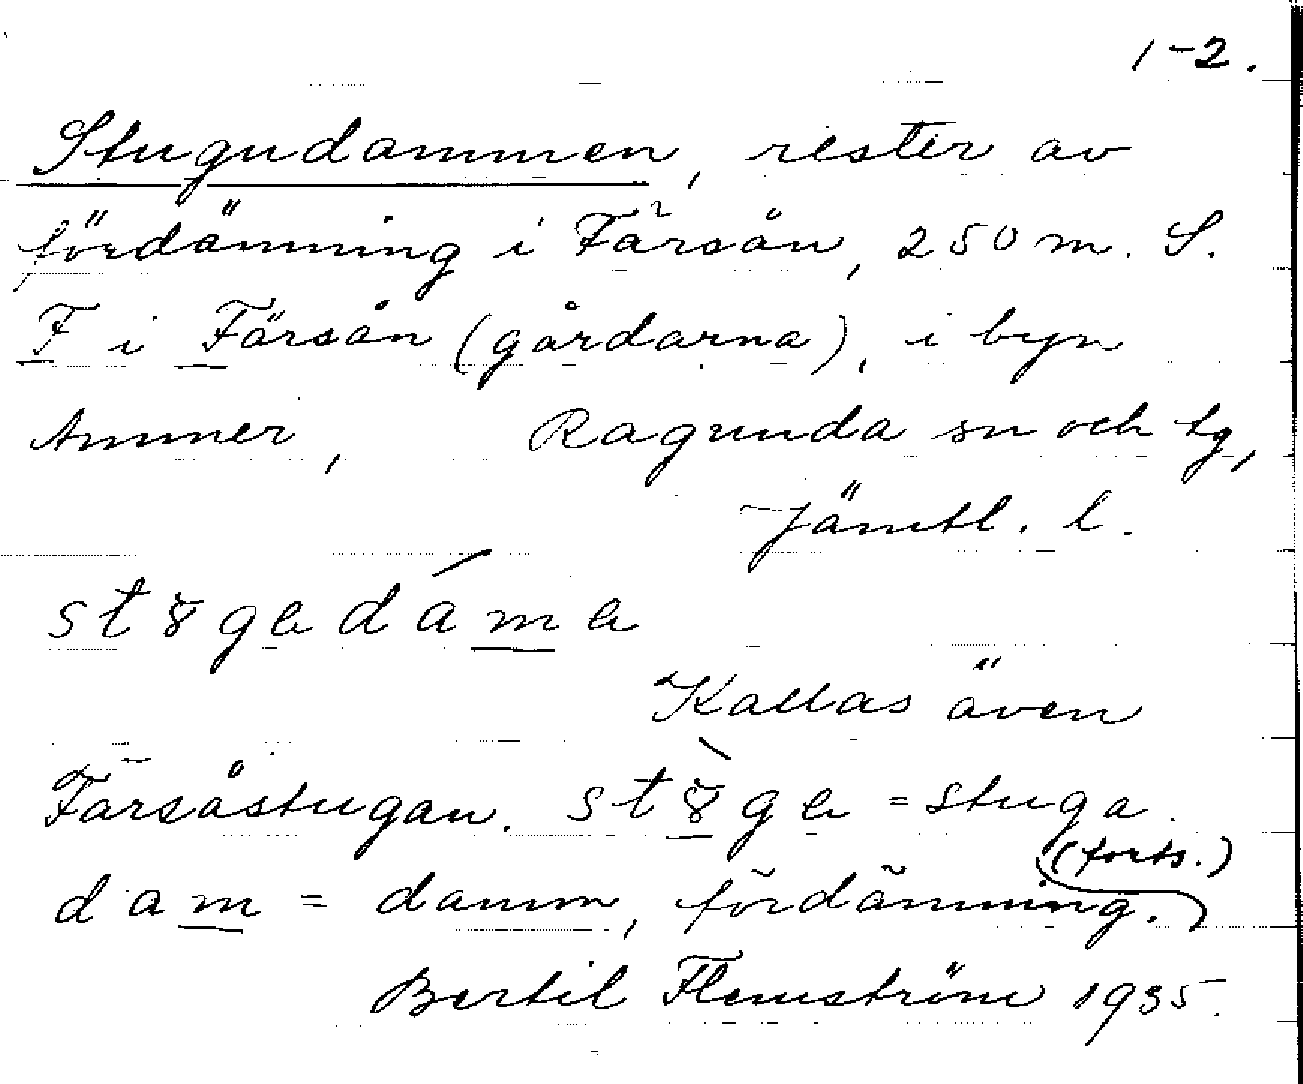 1-2.
Stugudammen, rester av
fördämning i Färsån, 250 m. S.
F i Färsån (gårdarna), i byn
Ammer, Ragunda sn och tg,
Jämtl. l.
Kallas även
Färsåstugan. = stuga.
(forts.)
dam = damm, fördämning.
Bertil Flemström 1935.